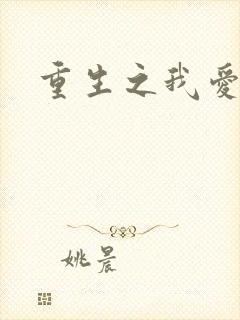 重生之我愛
姚晨